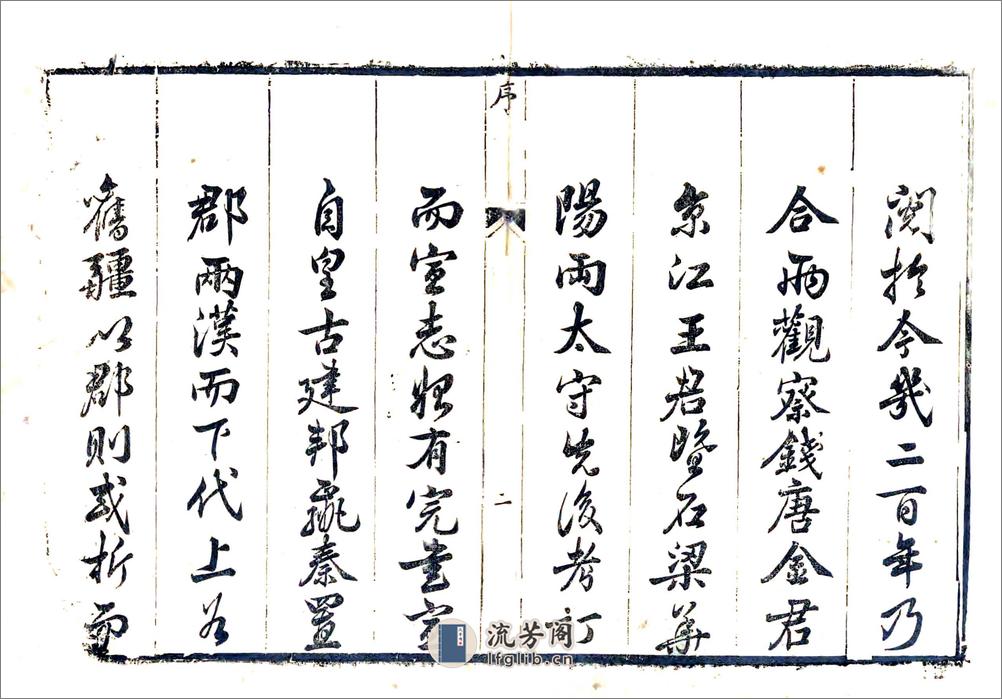 閱於今幾二百年乃
合兩觀察錢唐金君
京江王君暨石梁華
陽兩太守先後考訂
序
二
而宣志始有完書宣
自皇古建邦嬴秦置
郡兩漢而下代上
舊疆以郡則或析而
流芳阁
lfglib.cn